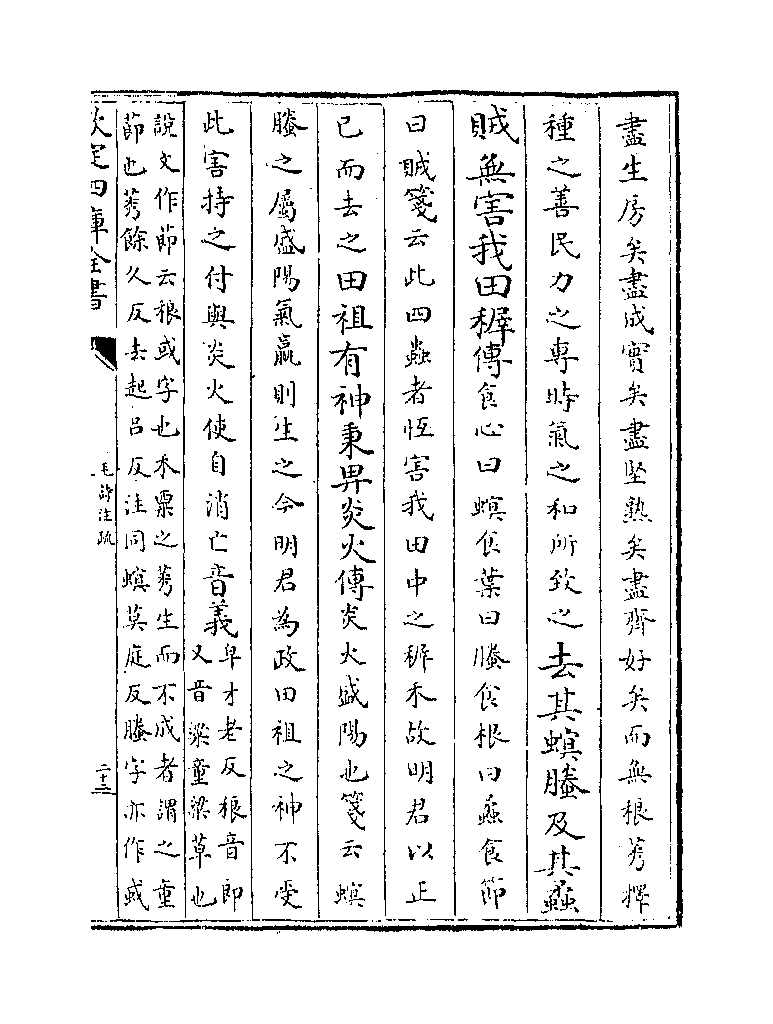 盡生房矣盡成實矣盡堅熟矣盡齊好矣而無稂莠擇
種之善民力之專時氣之和所致之去其螟螣及其蟊
賊無害我田穉傳食心曰螟食葉曰螣食根曰蟊食節
曰賊箋云此四蟲者恆害我田中之穉禾故明君以正
已而去之田祖有神秉畀炎火傳炎火盛陽也箋云螟
螣之屬盛陽氣贏則生之今明君為政田祖之神不受
此害持之付與炎火使自消亡音義
皁才老反稂音即
又音梁童梁草也
說文作蓈云稂或字也禾粟之莠生而不成者謂之童
蓈也莠餘久反去起呂反注同螟莫庭反螣字亦作䘌
欽定四庫全書
毛詩注疏
二十三